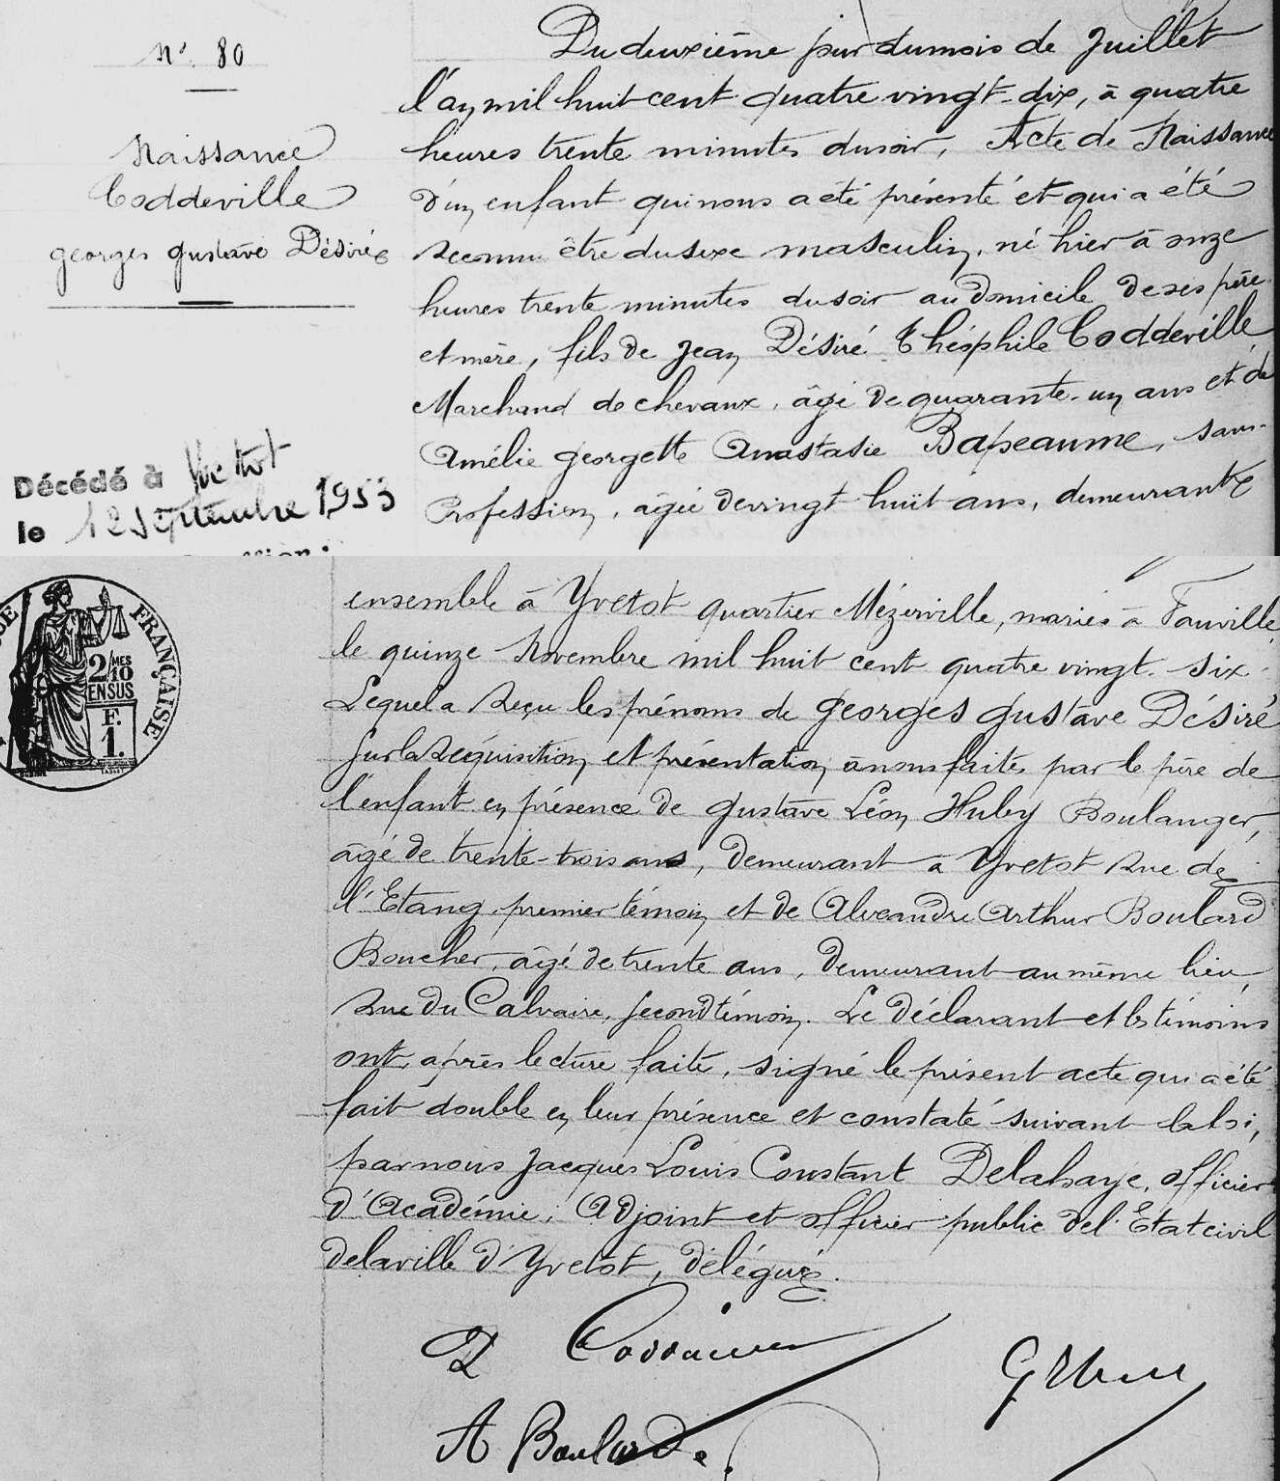 N° 80
Naissance
Coddeville
georges gustave Désiré
Décédé à Yvetot
le 12 septembre 1953
Du deuxième jour du mois de Juillet
l'an mil huit cent quatre vingt-dix, à quatre
heures trente minutes du soir, Acte de Naissance
d'un enfant qui nous a été présenté et qui a été
reconnu être du sexe masculin, né hier à onze
heures trente minutes du soir au domicile de ses père
et mère, fils de Jean Désiré Théophile Coddeville
Marchand de chevaux, âgé de quarante-un ans et de
Amélie georgette Anastasie Bapeaume, sans
Profession, âgée de vingt-huit ans, demeurant
ensemble à Yvetot quartier Mézerville, mariés à Fauville
le quinze Novembre mil huit cent quatre vingt-six
Lequel a reçu les prénoms de georges gustave Désiré
Sur la réquisition et présentation à nous faites par le père de
l'enfant en présence de gustave Léon Huby Boulanger,
âgé de trente-trois ans, demeurant à Yvetot rue de
l'Etang premier témoin et de Alexandre Arthur Boulard
Boucher, âgé de trente ans, demeurant au même lieu
rue du Calvaire, second témoin. Le déclarant et les témoins
ont, après lecture faite, signé le présent acte qui a été
fait double en leur présence et constaté suivant la loi,
par nous Jacques Louis Constant Delahaye, officier
d'Académie, Adjoint et officier public de l'Etat civil
de la ville d'Yvetot, délégué.
FRANÇAISE
2/10
MES
EN SUS
F.
1.
A Boulard